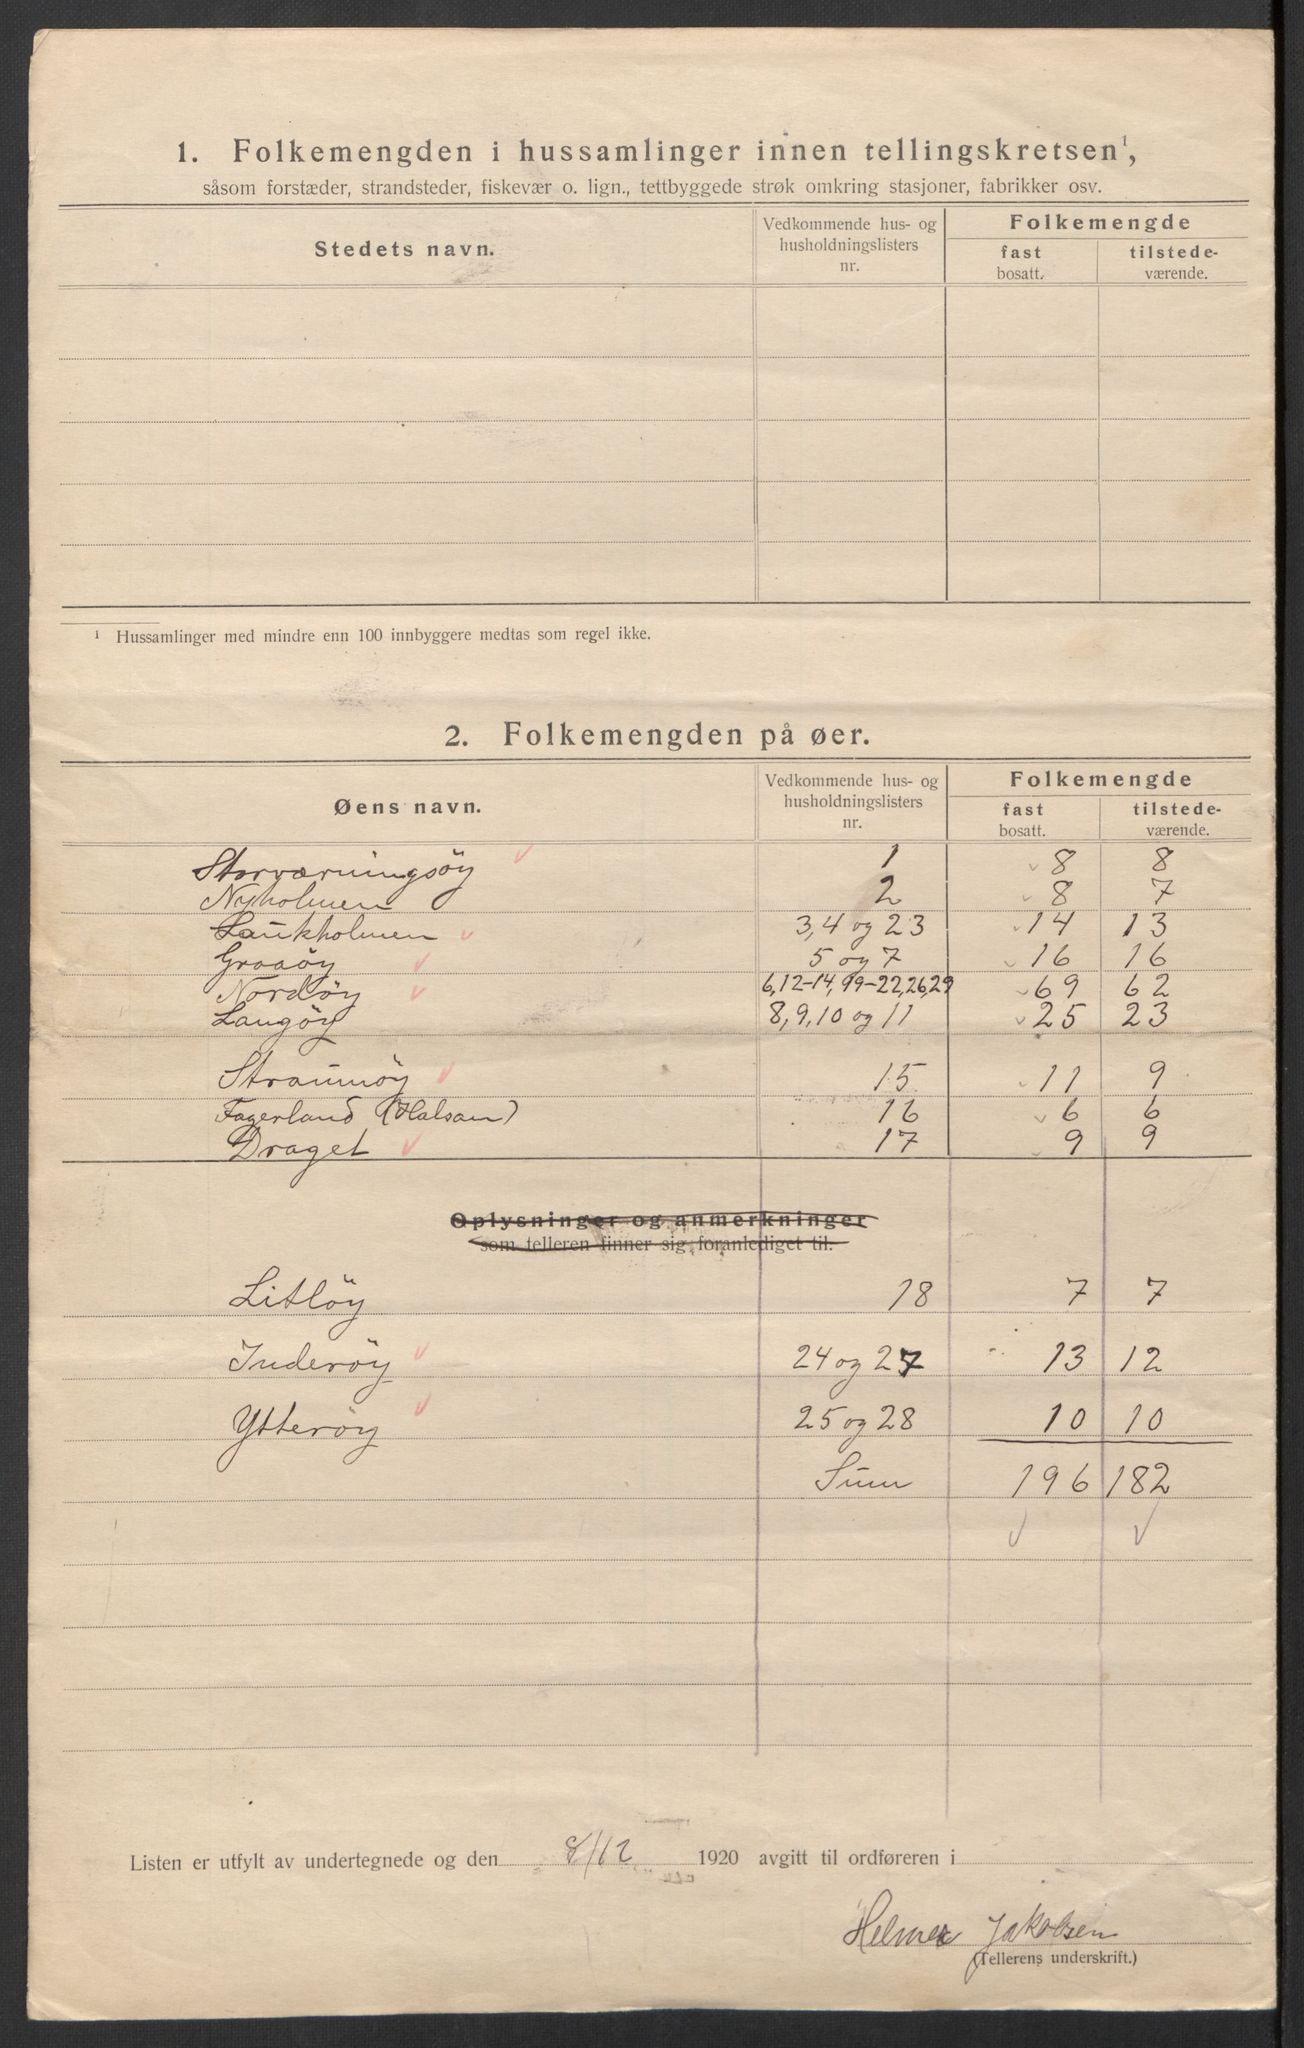 1. Folkemengden i hussamlinger innen tellingskretsen¹,
såsom forstæder, strandsteder, fiskevær o. lign., tettbyggede strøk omkring stasjoner, fabrikker osv.
Stedets navn. Vedkommende hus- og husholdningslisters nr. Folkemengde
fast bosatt. tilstedeværende.
¹ Hussamlinger med mindre enn 100 innbyggere medtas som regel ikke.
2. Folkemengden på øer.
Øens navn. Vedkommende hus- og husholdningslisters nr. Folkemengde
fast bosatt. tilstedeværende.
Storværningsöy 1 8 8
Nyholmen 2 8 7
Laukholmen 3, 4 og 23 14 13
Graaöy 5 og 7 16 16
Nordöy 6, 12-14, 19-22, 26, 29 69 62
Langöy 8, 9, 10 og 11 25 23
Straumöy 15 11 9
Fagerland (Halsan) 16 6 6
Draget 17 9 9
Oplysninger og anmerkninger
som telleren finner sig foranlediget til.
Litlöy 18 7 7
Inderöy 24 og 27 13 12
Ytteröy 25 og 28 10 10
Sum 196 182
Listen er utfylt av undertegnede og den 8/12 1920 avgitt til ordføreren i
Helmer Jakobsen
(Tellerens underskrift.)